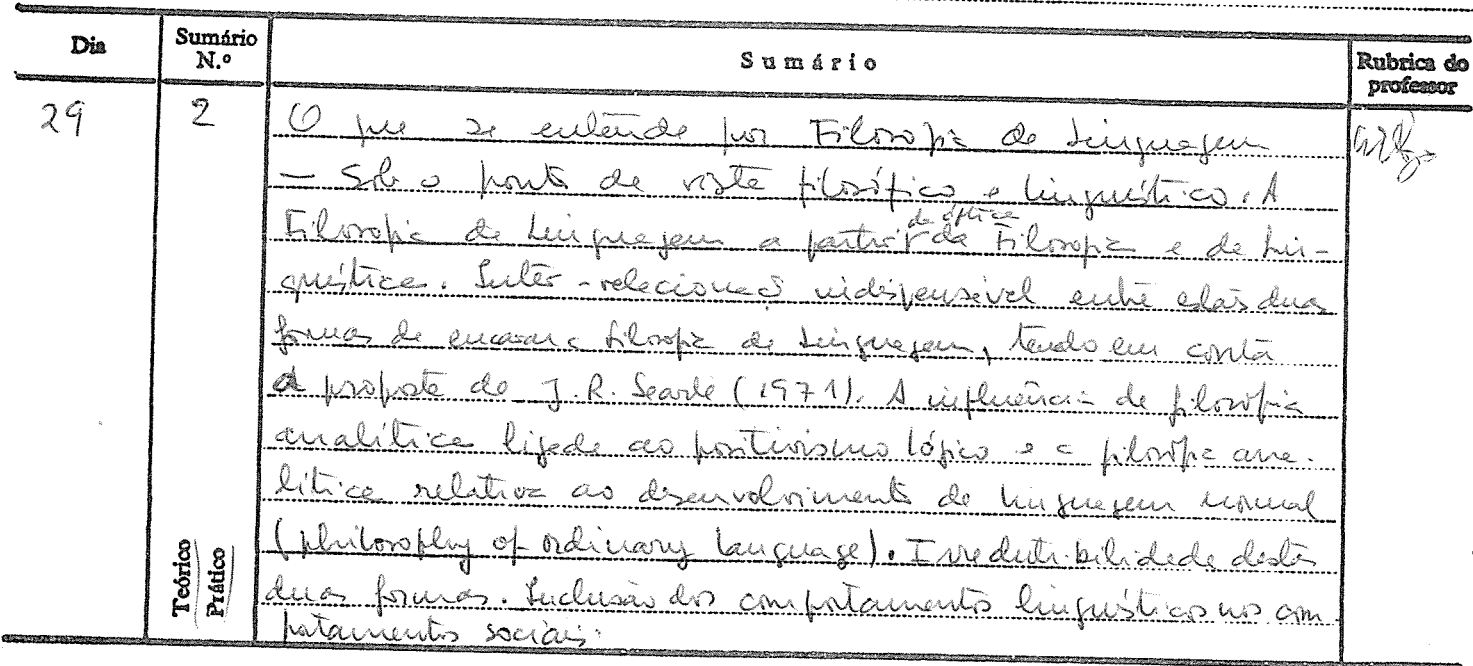 Dia
Sumário N.º
Sumário
Rubrica do professor
29
2
O que se entende por Filosofia da Linguagem
— Sob o ponto de vista filosófico e linguístico. A
de óptica
Filosofia da Linguagem a partir da Filosofia e da Lin-
guística. Inter-relacionação indispensável entre estas duas
formas de encarar a filosofia da Linguagem, tendo em conta
a proposta de J. R. Searle (1971). A influência da filosofia
analítica ligada ao positivismo lógico e a filosofia ana-
lítica relativa ao desenvolvimento da linguagem normal
(philosophy of ordinary language). Irredutibilidade destas
duas formas. Inclusão dos comportamentos linguísticos nos com
portamentos sociais.
Teórico
Prático